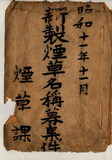 昭和十一年十一月
新製煙草名稱募集件
煙草課